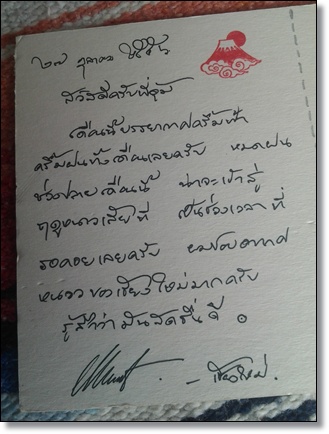 ๒๗ ตุลาคม ๒๕๕๖
สวัสดีครับพี่อุ้ม
เดือนนี้บรรยากาศครึ้มฟ้า
ครึ้มฝนทั้งเดือนเลยครับ หมดฝน
ช่วงปลายเดือนนี้ น่าจะเข้าสู่
ฤดูหนาวเสียที เป็นช่วงเวลาที่
รอคอยเลยครับ ผมชอบอากาศ
หนาว ของเชียงใหม่มากครับ
รู้สึกว่า มันสดชื่นดี ๐
- เชียงใหม่.